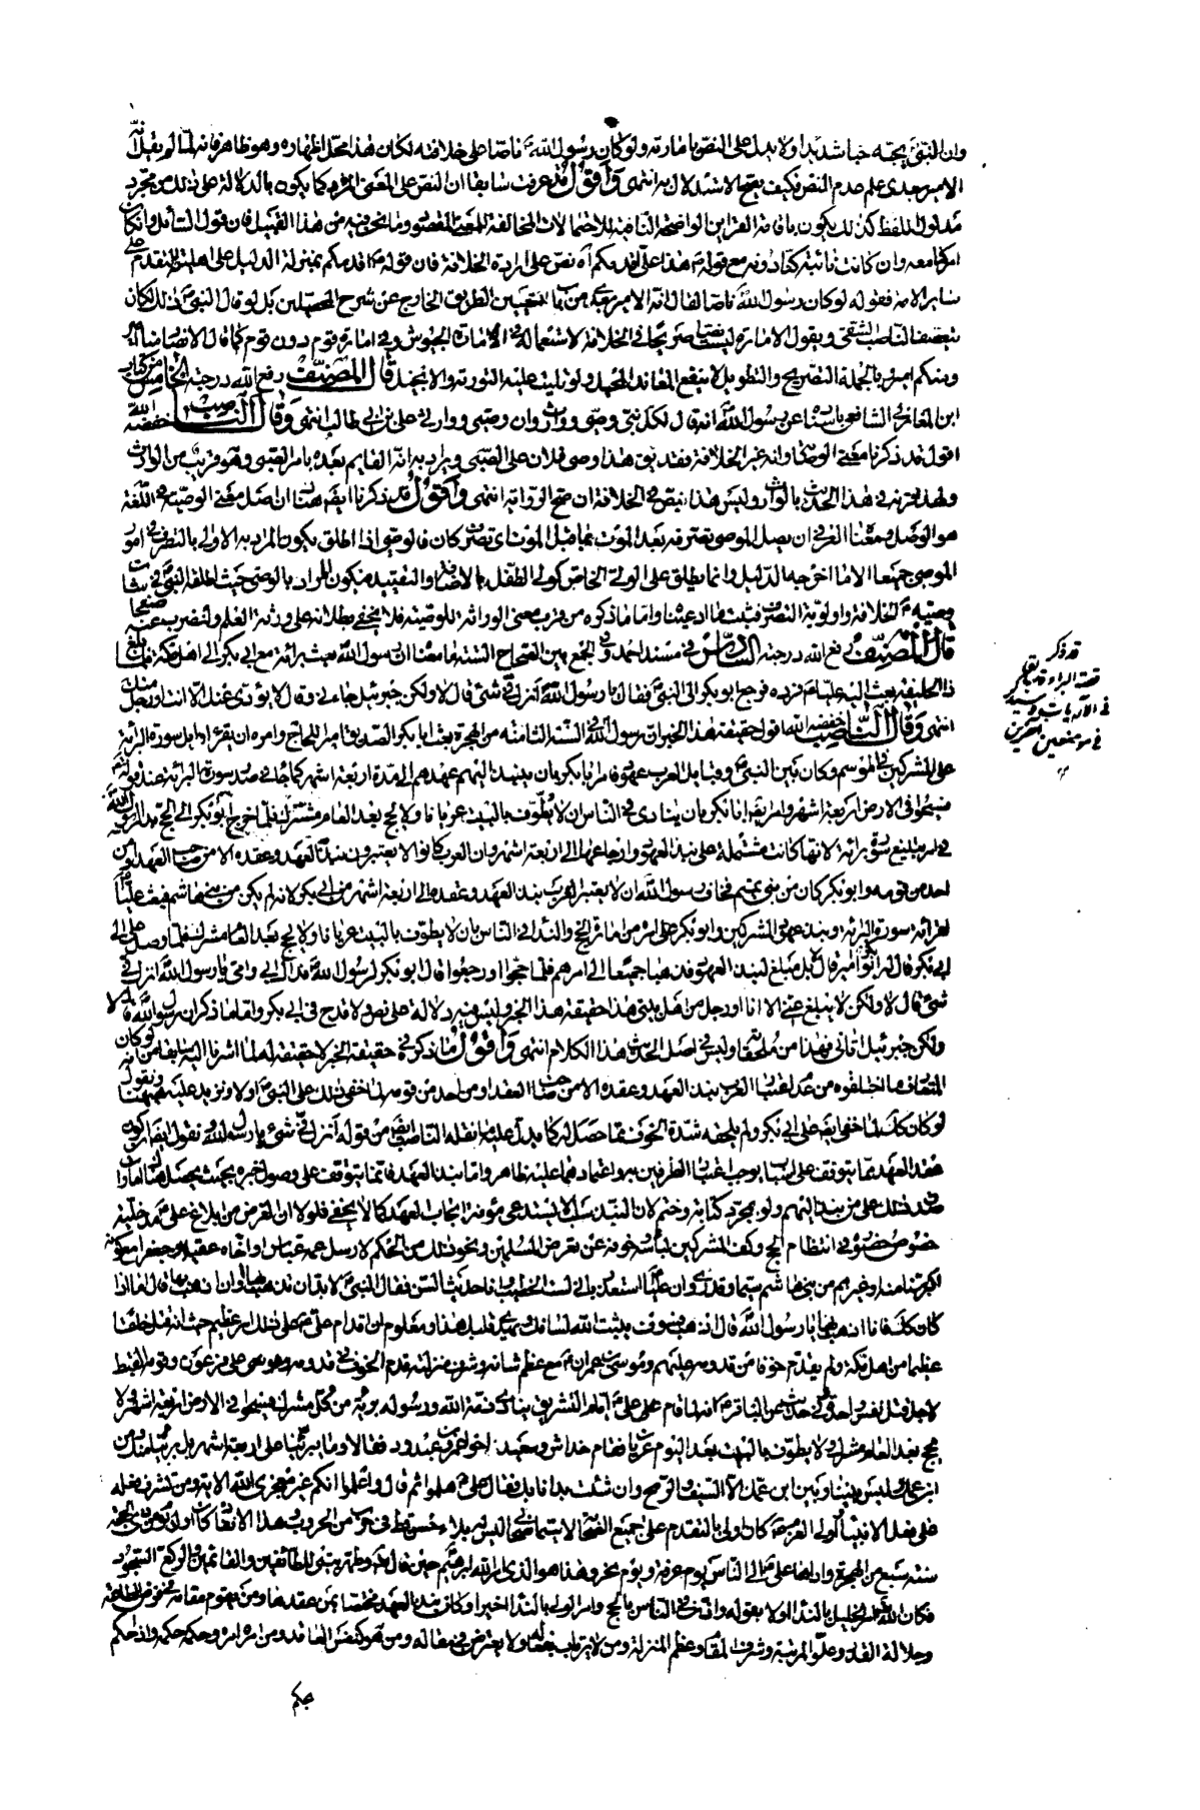 وان النبی یحبه حبا شدیدا ولا یدل علی النص بامارته ولو کان رسول الله ناصا علی خلافته لکان هذا محل اظهاره وهو ظاهر فانه لما لم یقل انه
الامیر بعدی علم عدم النص فکیف یصح الاستدلال به انتهی واقول قد عرفت سابقا ان النص علی المعنی المراد کما یکون بالدلالة علی ذلک من مجرد
مدلول اللفظ کذلک یکون باقامة القراین الواضحة النافیة للاحتمالات المخالفة للمعنی المقصود وما نحن فیه من هذا القبیل فان قول السائل وان کان
امر کنا معه وان کانت نائبة کنا دونه مع قوله هذا علی اقدمکم اه نص علی ارادة الخلافة فان قوله اقدمکم بمنزلة الدلیل علی اهلیته للتقدم علی
سایر الامة فقوله لو کان رسول الله ناصا لقال انه الامیر بعدی من باب تعیین الطریق الخارج عن شرح المحصلین بل لو قال النبی ذلک لکان
یتعصف الناصب الشقی ویقول الامارة لیست نصا صریحا فی الخلافة لاستعماله فی امارة الجیوش وفی امارة قوم دون قوم کما قال الانصار منا امیر
ومنکم امیر وبالجملة التصریح والتطویل لا ینفع المعاند المحیل ولو تلیت علیه التوریة والانجیل قال المصنف رفع الله درجته الخامس من کتاب
ابن المغازلی الشافعی باسناده عن رسول الله انه قال لکل نبی وصی ووارث وان وصیی ووارثی علی بن ابی طالب انتهی وقال الناصب خفضه الله
اقول قد ذکرنا معنی الوصایة وانه غیر الخلافة فقد یق هذا وصی فلان علی الصبی ویراد به انه القایم بعده بامر الصبی وهو قریب من الوارث
ولهذا قرنه فی هذا الحدیث بالوارث ولیس هذا بنص فی الخلافة ان صح الروایة انتهی واقول قد ذکرنا ایضا هناک ان اصل معنی الوصیة فی اللغة
هو الوصل ومعناها العرفی ان یصل الموصی تصرفه بعد الموت بما قبل الموت ای تصرف کان فالوصی اذا اطلق یکون المراد به الاولی بالتصرف فی امور
الموصی جمیعا الا ما اخرجه الدلیل وانما یطلق علی الولی الخاص کولی الطفل بالاضافة والتقیید فیکون المراد بالوصی حیث اطلقه النبی فی شان
وصیه الخلافة واولویة التصرف فثبت ما ادعیناه واما ما ذکره من قرب معنی الوراثة للوصیة فلا یخفی بطلانه علی ورثة العلم ولنضرب عنه صفحا
قال المصنف رفع الله درجته السادس فی مسند احمد وفی الجمع بین الصحاح الستة ما معناه ان رسول الله بعث برائة مع ابی بکر الی اهل مکة فلما بلغ
ذا الحلیفة بعث الیه علیا فرده فرجع ابو بکر الی النبی فقال یا رسول الله أنزل فی شئ قال لا ولکن جبرئیل جاءنی وقال لا یؤدی عنک الا انت او رجل منک
انتهی وقال الناصب خفضه الله اقول حقیقة هذا الخبر ان رسول الله فی السنة الثامنة من الهجرة بعث ابا بکر الصدیق امیرا للحاج وامره ان یقرء اوایل سورة البرائة
علی المشرکین فی الموسم وکان بین النبی وقبایل العرب عهود فامر ابا بکر بان ینبذ الیهم عهدهم الی مدة اربعة اشهر کما جاء فی صدر سورة البرائة عند قوله
فسیحوا فی الارض اربعة اشهر وامر ایضا ابا بکر بان ینادی فی الناس ان لا یطوف بالبیت عریانا ولا یحج بعد العام مشرک فلما خرج ابو بکر الی الحج بدا لرسول الله
فی امر تبلیغ سورة برائة لانها کانت مشتملة علی نبذ العهود وارجاعها الی اربعة اشهر وان العرب کانوا لا یعتبرون نبذ العهد وعقده الا من صاحب العهد او من
احد من قومه وابو بکر کان من بنی تمیم فخاف رسول الله ان لا یعتبر العرب نبذ العهد وعقده الی اربعة اشهر من ابی بکر لانه لم یکن من بنی هاشم فبعث علیا
لقرائة سورة البرائة ونبذ عهود المشرکین وابو بکر علی امره من امارة الحج والندا فی الناس بان لا یطوف بالبیت عریانا ولا یحج بعد العام مشرک فلما وصل علی الی
ابی بکر قال له ابو بکر أمیر قال لا بل مبلغ لنبذ العهود فذهبا جمیعا الی امرهم فلما حجوا ورجعوا قال ابو بکر لرسول الله فداک ابی وامی یا رسول الله انزل فی
شئ قال لا ولکن لا یبلغ عنی الا انا او رجل من اهل بیتی هذا حقیقة هذا الخبر ولیس فیه دلالة علی نص ولا قدح فی ابی بکر واما ما ذکر ان رسول الله قال لا
ولکن جبرئیل اتانی فهذا من ملحقاته ولیس فی اصل الحدیث هذا الکلام انتهی واقول ما ذکره فی حقیقة الخبر لا حقیقة له لما اشرنا الیه سابقا من انه لو کان
المتعارف ما اختلقوه من عدم اعتبار العرب نبذ العهد وعقده الا من صاحب العقد او من احد من قومه لما خفی ذلک علی النبی اولا ونزید علیه ههنا ونقول
لو کان کذلک لما خفی ایضا علی ابی بکر ولم یلحقه شدة الخوف مما حصل له کما یدل علیه ما نقله الناصب ایضا من قوله أنزل فی شئ یا رسول الله ونقول ایضا ان کون
عقد العهد مما یتوقف علی اسباب یوجب اعتبار الطرفین به واعتمادهما علیه ظاهر واما نبذ العهد فانما یتوقف علی وصول خبره بحیث یحصل
صدق ذلک علی من نبذ الیهم ولو بمجرد کتابة وختم لان النبذ سلب لا یستدعی مؤنة ایجاب العهد کما لا یخفی فلولا ان الغرض من ابلاغ علی مدخلیة
خصوص حضوره فی انتظام الحج وکف المشرکین لباسه وخوفه عن تعرض المسلمین ونحو ذلک من الحکم لارسل عمه عباس او اخاه عقیل او جعفر مع کونه
اکبر سنا منه او غیرهم من بنی هاشم سیما وقد روی ان علیا استعذر بانی لست الخطیب وانا حدیث السن فقال النبی لا بد ان تذهب بها او ان اذهب بها قال اما اذا
کان کذلک فانا اذهب بها یا رسول الله قال اذهب فسوف یثبت الله لسانک ویهدی قلبک هذا ومعلوم ان اقدام علی علی ذلک امر عظیم حیث انه قتل خلقا
عظیما من اهل مکة ولم یقدم خوفا من قدومه علیهم وموسی بن عمران مع عظم شانه وشرف منزلته قدم الخوف فی قدومه وهو نبی علی فرعون وقومه القبط
لاجل قتل نفس واحدة وفی حدیث عن الباقر انه لما قام علی ایام التشریق ینادی ذمة الله ورسوله بریئة من کل مشرک فسیحوا فی الارض اربعة اشهر لا
یحج بعد العام مشرک ولا یطوف بالبیت بعد الیوم عریان فقام خداش وسعید اخو عمرو بن عبدود فقالا وما یسرنا علی اربعة اشهر بل برئنا منک ومن
ابن عمک ولیس بیننا وبین ابن عمک الا السیف والرمح وان شئت بدانا بک فقال علی هلموا ثم قال واعلموا انکم غیر معجزی الله الایة ومن تشرف فعله
علی فعل الانبیاء أولی العزم کان اولی بالتقدم علی جمیع الصحابة لا سیما من لیس له بلاء حسن قط فی حرب من الحروب وهذا الاتفاق کان اول یوم من ذی الحجة
سنة تسع من الهجرة واداها علی الی الناس یوم عرفة ویوم نحر وهذا هو الذی امر الله ابرهیم حین قال الله وطهر بیتی للطائفین والقائمین والرکع السجود
فکان الله امر الخلیل بالنداء اولا بقوله واذن فی الناس بالحج وامر الولی بالنداء اخیرا وکان نبذ العهد مختصا بمن عقدها ومن یقوم مقامه فی فرض الطاعة
وجلالة القدر وعلو المرتبة وشرف المقام وعظم المنزلة ومن لا یرتاب بفعاله ولا یعترض فی مقاله ومن هو کنفس العاقد ومن امره امره وحکمه حکمه واذا حکم
حکم
قد ذکر
قصة البراءة
فی موضعین